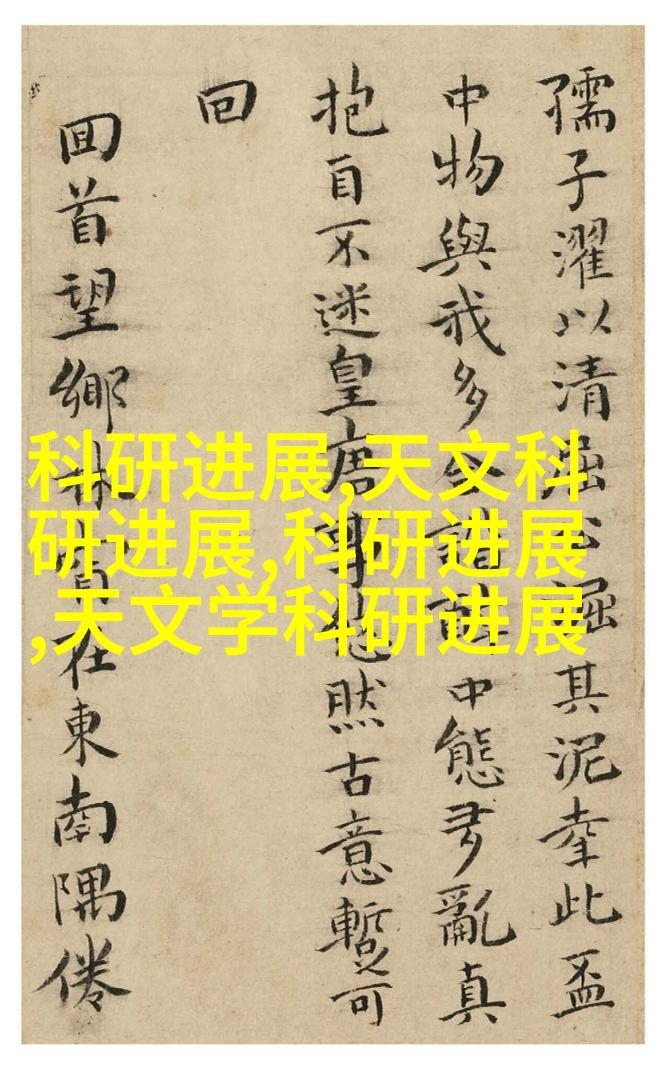 孺子濯以清屈公掘其泥幸此盃
中物與我多諧醉中態多亂真
抱自不迷皇唐事悠然古意暫可
回
囬首望鄉在東南隅倦
科研进展,天文科
研进展,科研进展
,天文学科研进展